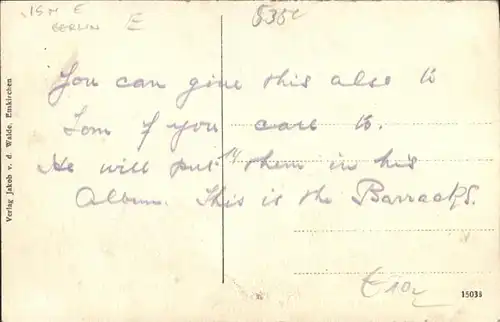 15M E
BERLIN E
535c
You can give this also to
Tom if you care to.
He will put them in his
Album. This is the Barracks.
Verlag Jakob v. d. Walde, Emskirchen
15033